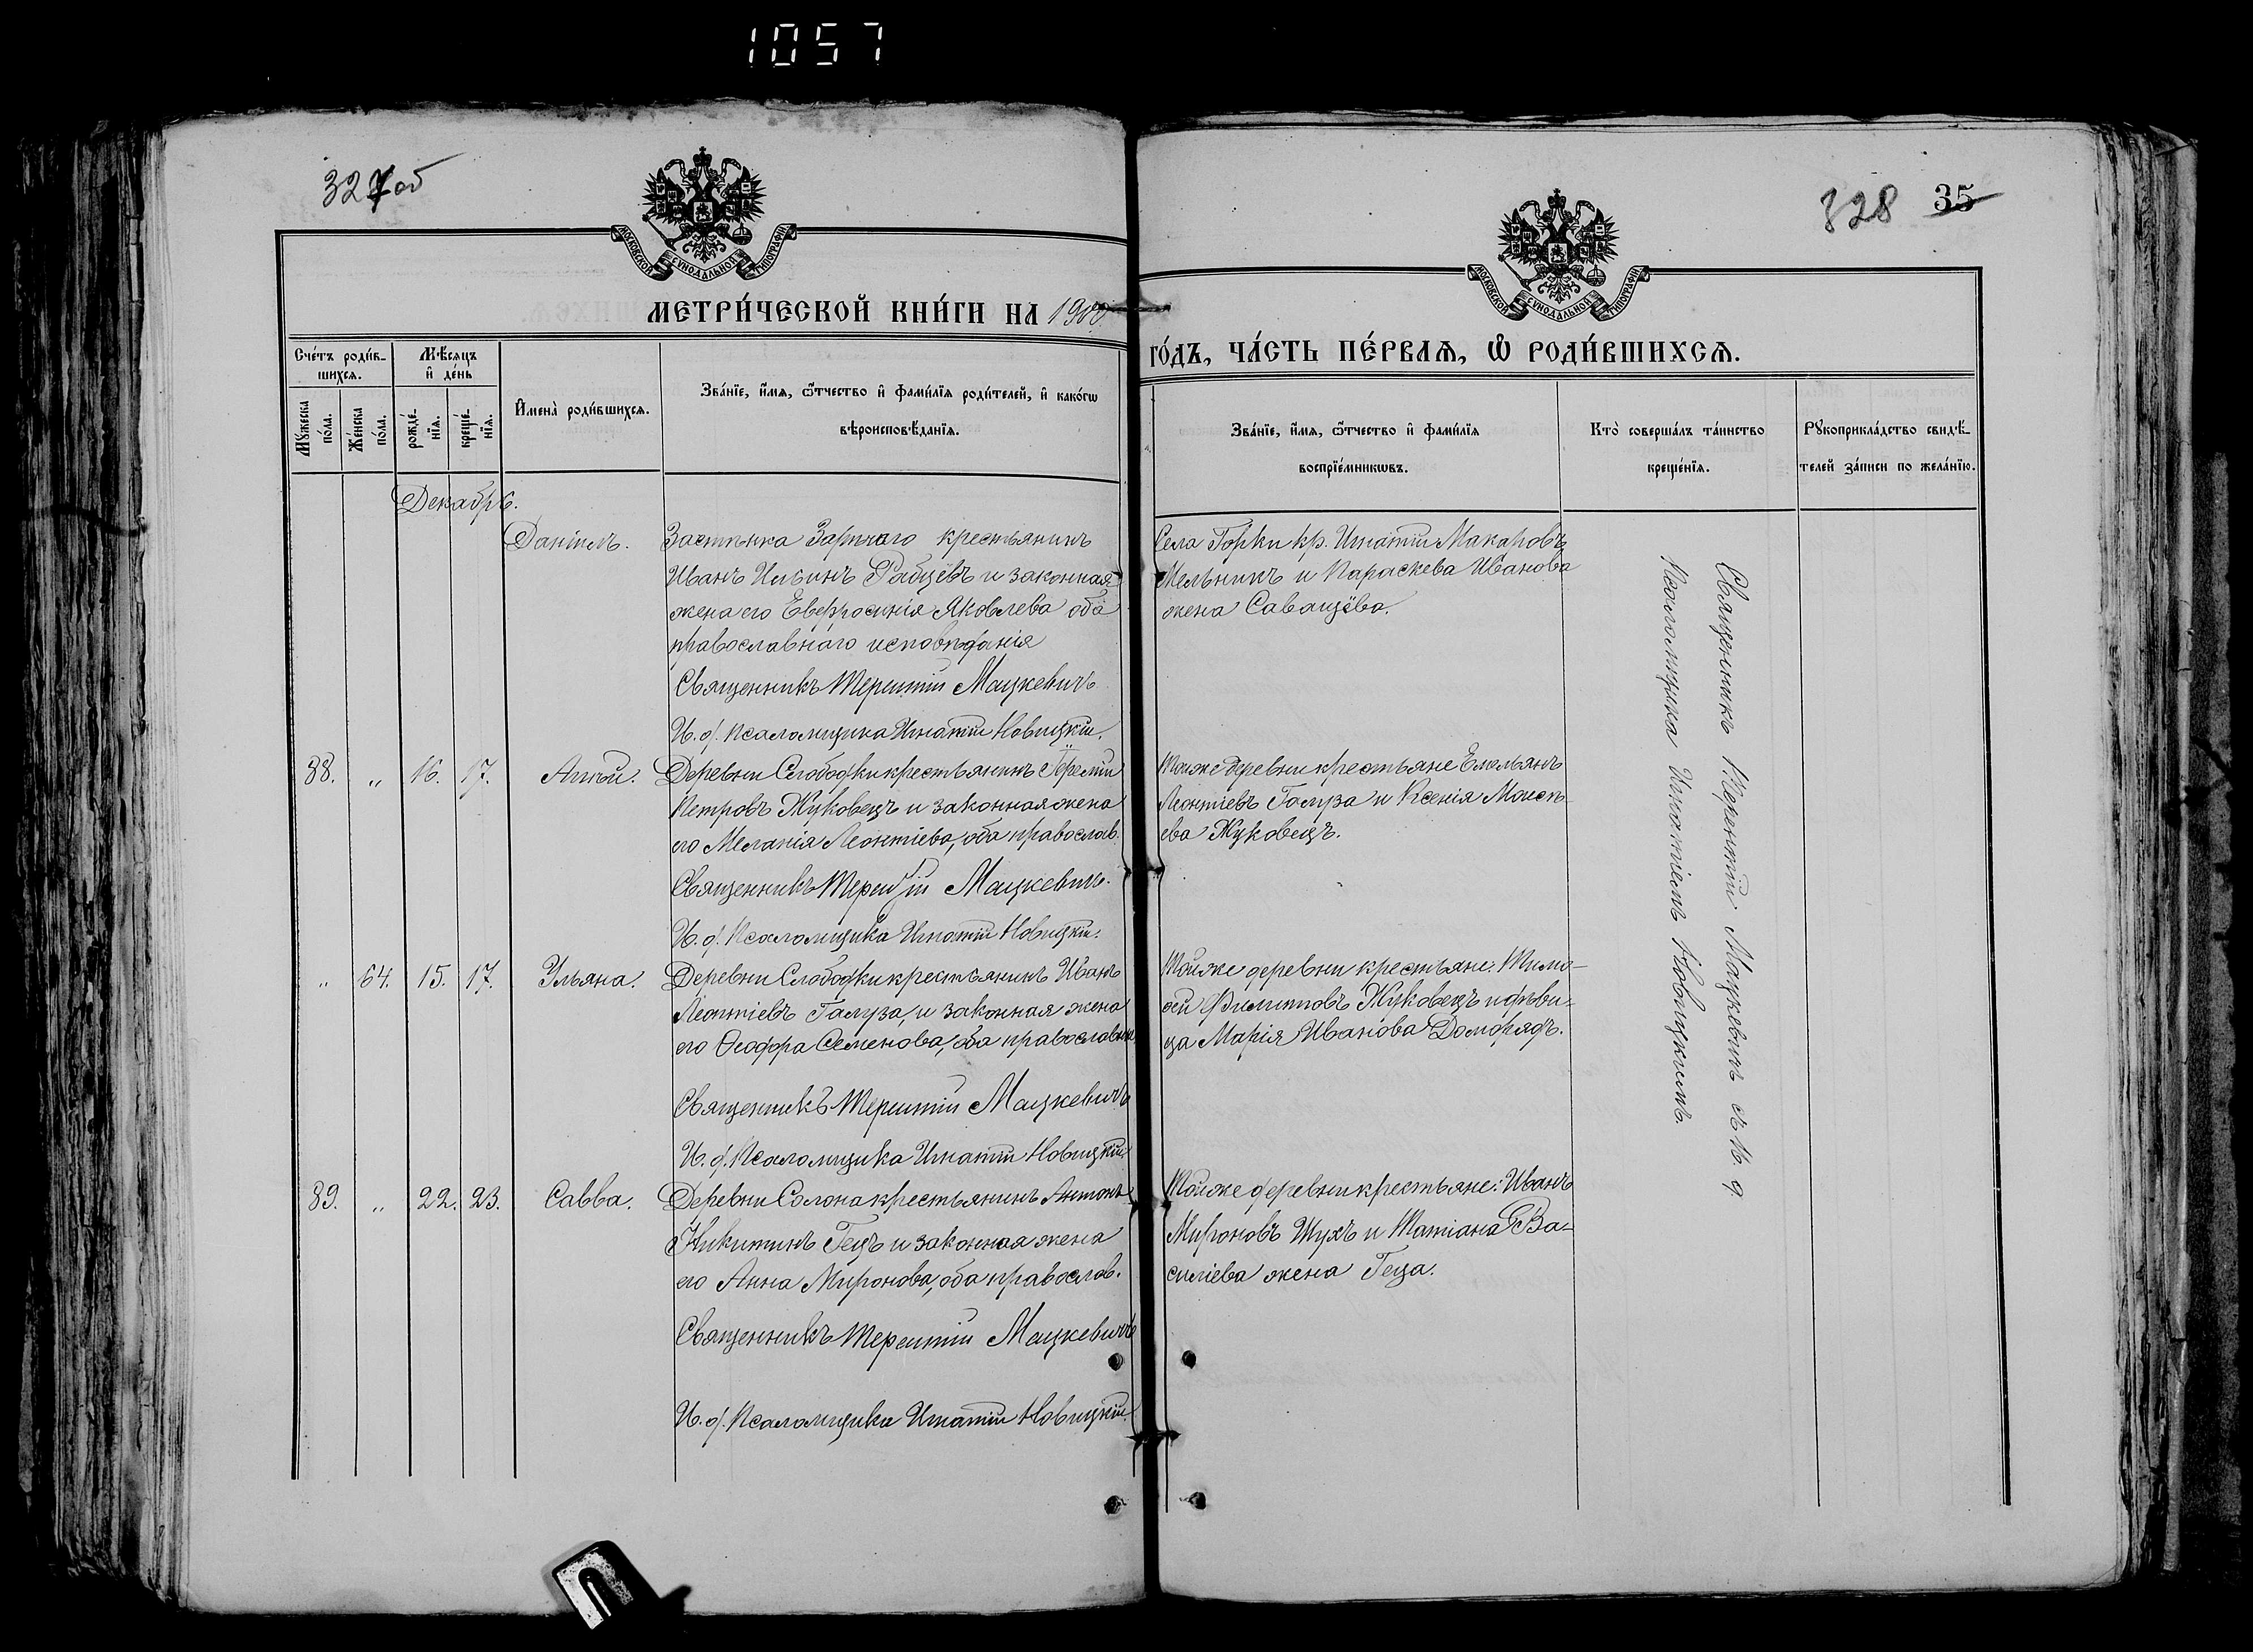 1057
327об
МОСКОВСКОЙ СѴНОДАЛЬНОЙ ТИПОГРАФІИ
МЕТРИ́ЧЕСКОЙ КНИ́ГИ НА 1900
Сче́тъ роди́в-
шихсѧ.
Мꙋ́жеска
по́ла.
Же́нска
по́ла.
Мѣ́сѧцъ
и҆ де́нь
рожде́-
нїѧ.
креще́-
нїѧ.
И҆мена̀ роди́вшихсѧ.
Зва́нїе, и҆́мѧ, ѻ҆́тчество и҆ фами́лїѧ роди́телей, и҆ како́гѡ
вѣроисповѣ́данїѧ.
Декабрь.
Даніилъ.
Застѣнка Зарѣчаго крестьянинъ
Иванъ Ильинъ Рабцевъ и законная
жена его Евфросинія Яковлева оба
православнаго исповѣданія
Священникъ Терентій Мацкевичъ
И. д. Псаломщика Игнатій Новицкій.
88. „ 16. 17. Аггей. Деревни Слободки крестьянинъ Іеремій
Петровъ Жуковецъ и законная жена
его Меланія Леонтіева, оба православ.
Священникъ Терентій Мацкевичъ.
И. д. Псаломщика Игнатій Новицкій.
„ 64. 15. 17. Ульяна. Деревни Слободки крестьянинъ Иванъ
Леонтіевъ Галуза, и законная жена
его Ѳеодора Семенова, оба православные
Священникъ Терентій Мацкевичъ
И. д. Псаломщика Игнатій Новицкій.
89. „ 22. 23. Савва. Деревни Солона крестьянинъ Антонъ
Никитинъ Гецъ и законная жена
его Анна Миронова, оба православ.
Священникъ Терентій Мацкевичъ
И. д. Псаломщика Игнатій Новицкій.
328 35
МОСКОВСКОЙ СѴНОДАЛЬНОЙ ТИПОГРАФІИ
ГО́ДЪ, ЧА́СТЬ ПЕ́РВАѦ, Ѡ҆ РОДИ́ВШИХСѦ.
Зва́нїе, и҆́мѧ, ѻ҆́тчество и҆ фами́лїѧ
воспрїе́мникѡвъ.
Кто̀ соверша́лъ та́инство
креще́нїѧ.
Рꙋкоприкла́дство свидѣ́-
телей за́писи по жела́нїю.
Села Горки кр. Игнатій Макаровъ
Мельникъ и Параскева Иванова
жена Саванцёва.
Тойже деревни крестьяне Емельянъ
Леонтіевъ Галуза и Ксенія Моисѣ-
ева Жуковецъ.
Тойже деревни крестьяне: Тимо-
ѳей Филипповъ Жуковецъ и дѣви-
ца Марія Иванова Доморадъ.
Тойже деревни крестьяне: Иванъ
Мироновъ Шухъ и Татіана Ва-
силіева жена Геца.
Священникъ Терентій Мацкевичъ съ И. д.
Псаломщика Игнатіемъ Новицкимъ.